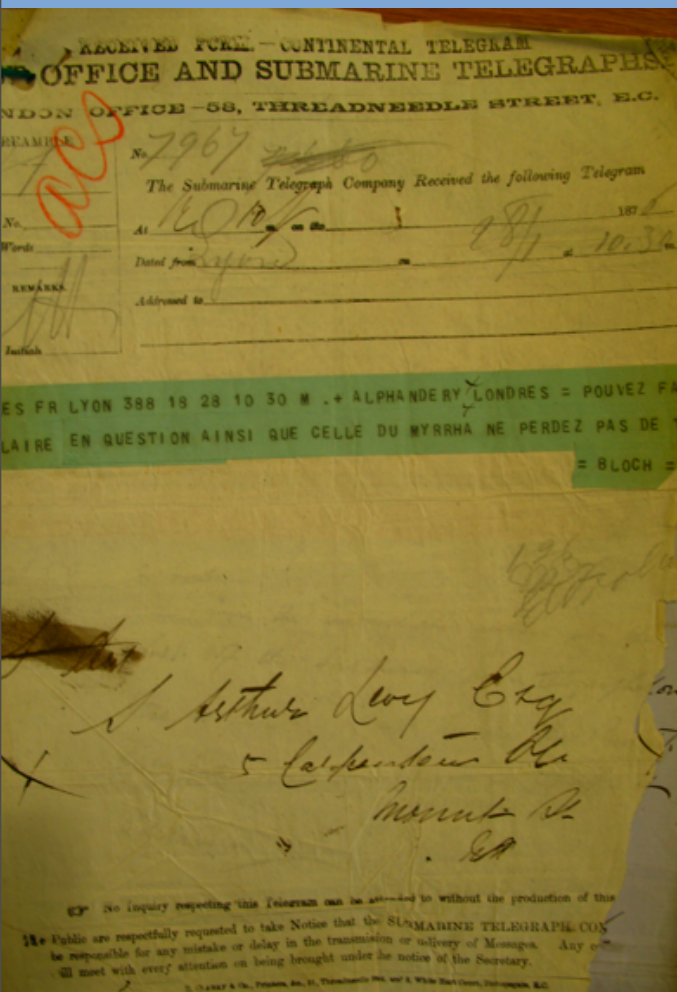 RECEIVED FORM.—CONTINENTAL TELEGRAM
OFFICE AND SUBMARINE TELEGRAPHS
NDON OFFICE—58, THREADNEEDLE STREET, E.C.
PREAMBLE
acc
No. 7967
The Submarine Telegraph Company Received the following Telegram
No.
At on the 187
Words
Dated from Lyons on 28/1 at 10.30 m
REMARKS.
Addressed to
Initials
ES FR LYON 388 18 28 10 30 M .+ ALPHANDERY LONDRES = POUVEZ FA
LAIRE EN QUESTION AINSI QUE CELLE DU MYRRHA NE PERDEZ PAS DE
= BLOCH =
S Arthur Levy Esq
5 Carpenters
Mount St
No Inquiry respecting this Telegram can be attended to without the production of this
Public are respectfully requested to take Notice that the SUBMARINE TELEGRAPH COM
be responsible for any mistake or delay in the transmision or delivery of Messages. Any
ill meet with every attention on being brought under the notice of the Secretary.